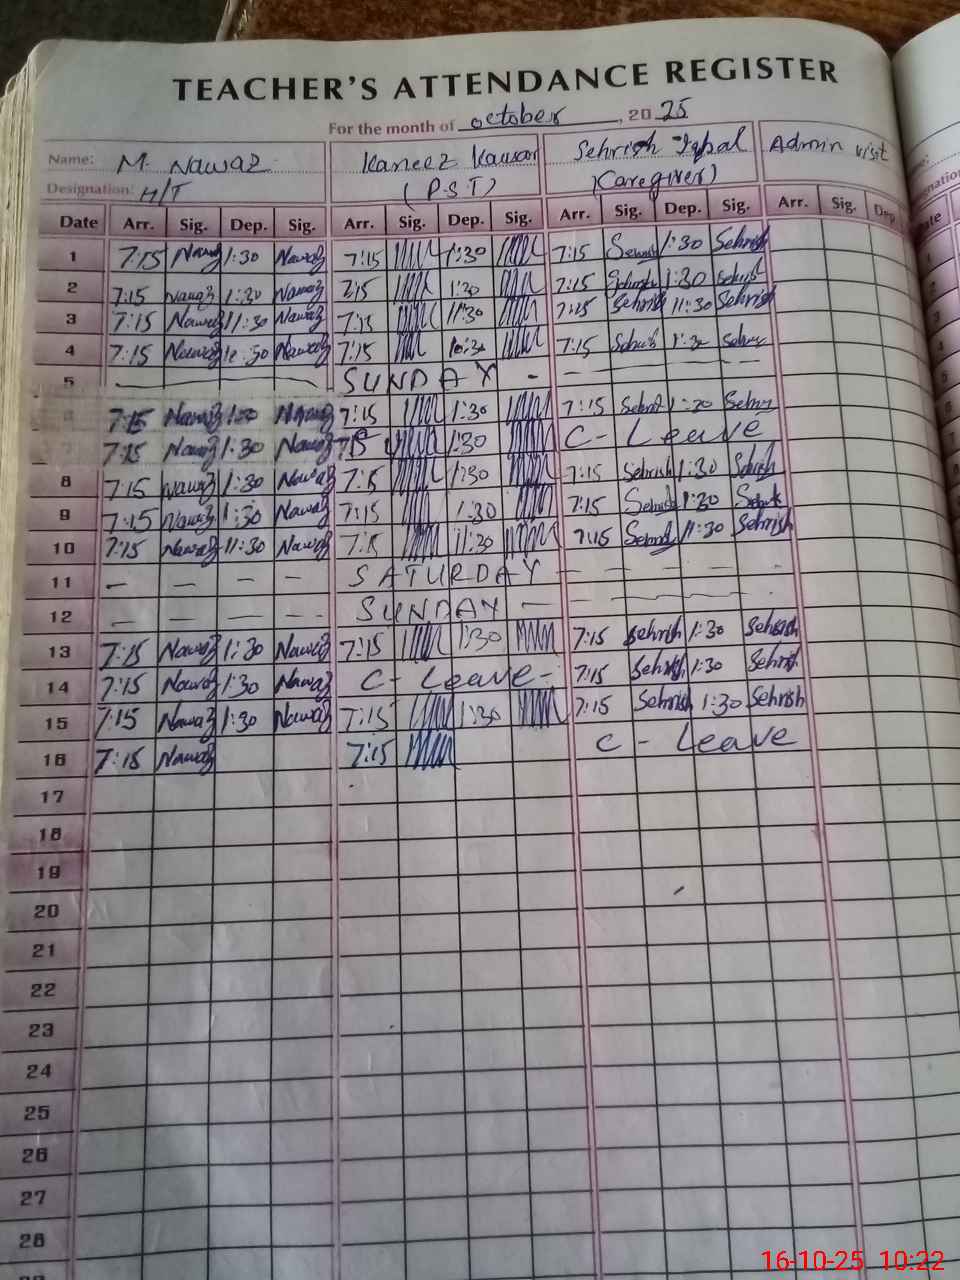 TEACHER'S ATTENDANCE REGISTER
For the month of october, 20 25
Name: M. Nawaz Kaneez Kausar Sehrish Iqbal Admin visit
Designation: H/T (P.S.T) (Caregiver)
Date Arr. Sig. Dep. Sig. Arr. Sig. Dep. Sig. Arr. Sig. Dep. Sig. Arr. Sig. Dep.
1 7:15 Nawaz 1:30 Nawaz 7:15 1:30 7:15 Sehrish 1:30 Sehrish
2 7:15 Nawaz 1:30 Nawaz 7:15 1:30 7:15 Sehrish 1:30 Sehrish
3 7:15 Nawaz 11:30 Nawaz 7:15 11:30 7:15 Sehrish 11:30 Sehrish
4 7:15 Nawaz Nawaz 7:15 7:15 Sehrish 1:30 Sehrish
5 SUNDAY -
7:15 Nawaz 1:30 Nawaz 7:15 1:30 7:15 Sehrish 1:30 Sehrish
7:15 Nawaz 1:30 Nawaz 7:15 1:30 C- Leave
8 7:15 Nawaz 1:30 Nawaz 7:15 1:30 7:15 Sehrish 1:30 Sehrish
9 7:15 Nawaz 1:30 Nawaz 7:15 1:30 7:15 Sehrish 1:30 Sehrish
10 7:15 Nawaz 11:30 Nawaz 7:15 11:30 7:15 Sehrish 11:30 Sehrish
11 - - - - SATURDAY - - - - -
12 - - - - SUNDAY - - - - -
13 7:15 Nawaz 1:30 Nawaz 7:15 1:30 7:15 Sehrish 1:30 Sehrish
14 7:15 Nawaz 1:30 Nawaz C- Leave- 7:15 Sehrish 1:30 Sehrish
15 7:15 Nawaz 1:30 Nawaz 7:15 1:30 7:15 Sehrish 1:30 Sehrish
16 7:15 Nawaz 7:15 C - Leave
17
18
19
20
21
22
23
24
25
26
27
28
16-10-25 10:22